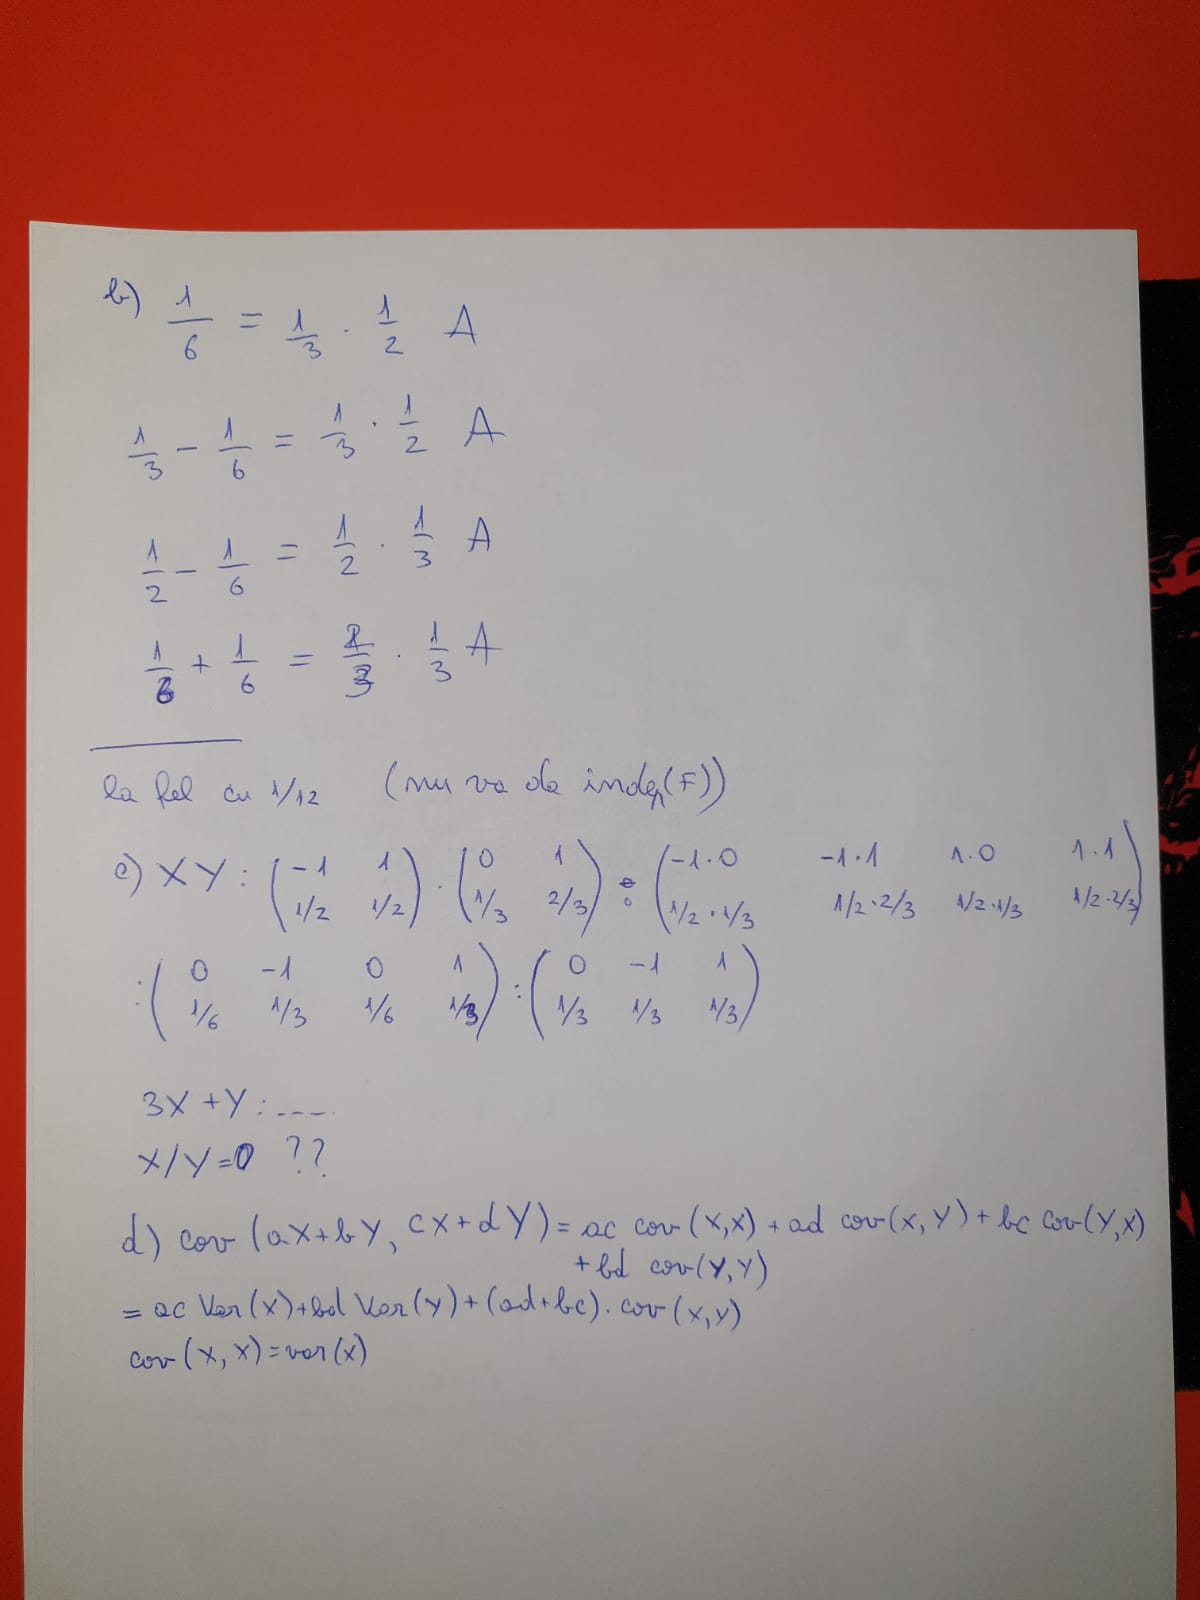 b) 1/6 = 1/3 · 1/2 A
1/3 - 1/6 = 1/3 · 1/2 A
1/2 - 1/6 = 1/2 · 1/3 A
1/6 + 1/6 = 2/3 · 1/3 A
la fel cu 1/12 (nu va da indep(F))
c) XY: (-1 1 / 1/2 1/2) · (0 1 / 1/3 2/3) : (-1·0 -1·1 1·0 1·1 / 1/2·1/3 1/2·2/3 1/2·1/3 1/2·2/3)
: (0 -1 0 1 / 1/6 1/3 1/6 1/3) : (0 -1 1 / 1/3 1/3 1/3)
3X + Y: ----
X/Y=0 ??
d) cov (aX+bY, cX+dY) = ac cov (X,X) + ad cov(X,Y) + bc cov(Y,X)
+ bd cov(Y,Y)
= ac Var(X)+bd Var(Y)+(ad+bc). cov(X,Y)
cov(X,X)=var(X)